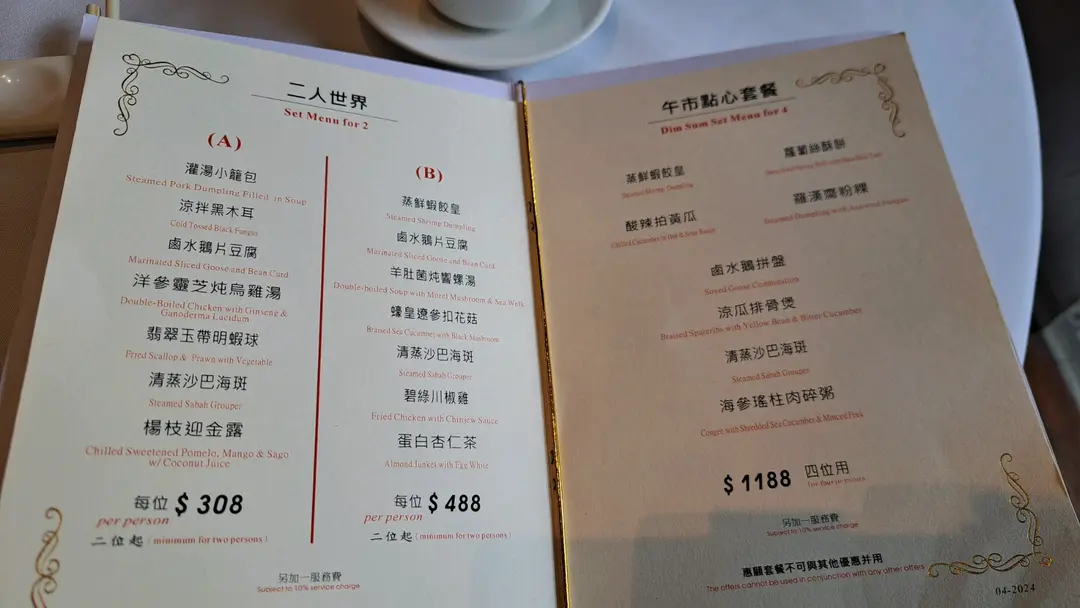 二人世界
Set Menu for 2
(A)
灌湯小籠包
Steamed Pork Dumpling Filled in Soup
涼拌黑木耳
Cold Tossed Black Fungus
鹵水鵝片豆腐
Marinated Sliced Goose and Bean Curd
洋參靈芝炖烏雞湯
Double-Boiled Chicken with Ginseng &
Ganoderma Lucidum
翡翠玉帶明蝦球
Fried Scallop & Prawn with Vegetable
清蒸沙巴海斑
Steamed Sabah Grouper
楊枝迎金露
Chilled Sweetened Pomelo, Mango & Sago
w/ Coconut Juice
每位 $ 308
per person
二位起 ( minimum for two persons )
(B)
蒸鮮蝦餃皇
Steamed Shrimp Dumpling
鹵水鵝片豆腐
Marinated Sliced Goose and Bean Curd
羊肚菌炖響螺湯
Double-boiled Soup with Morel Mushroom & Sea Welk
蠔皇遼參扣花菇
Braised Sea Cucumber with Black Mushroom
清蒸沙巴海斑
Steamed Sabah Grouper
碧綠川椒雞
Fried Chicken with Chinjew Sauce
蛋白杏仁茶
Almond Junket with Egg White
每位 $ 488
per person
二位起 ( minimum for two persons )
另加一服務費
Subject to 10% service charge
午市點心套餐
Dim Sum Set Menu for 4
蒸鮮蝦餃皇
Steamed Shrimp Dumpling
蘿蔔絲酥餅
酸辣拍黃瓜
Chilled Cucumber in Hot & Sour Sauce
羅漢齋粉粿
Steamed Dumpling with Assorted Fungus
鹵水鵝拼盤
Soyed Goose Combination
涼瓜排骨煲
Braised Spareribs with Yellow Bean & Bitter Cucumber
清蒸沙巴海斑
Steamed Sabah Grouper
海參瑤柱肉碎粥
Congee with Shredded Sea Cucumber & Minced Pork
$ 1188 四位用
for four persons
另加一服務費
Subject to 10% service charge
惠顧套餐不可與其他優惠并用
The offers cannot be used in conjunction with any other offers
04-2024